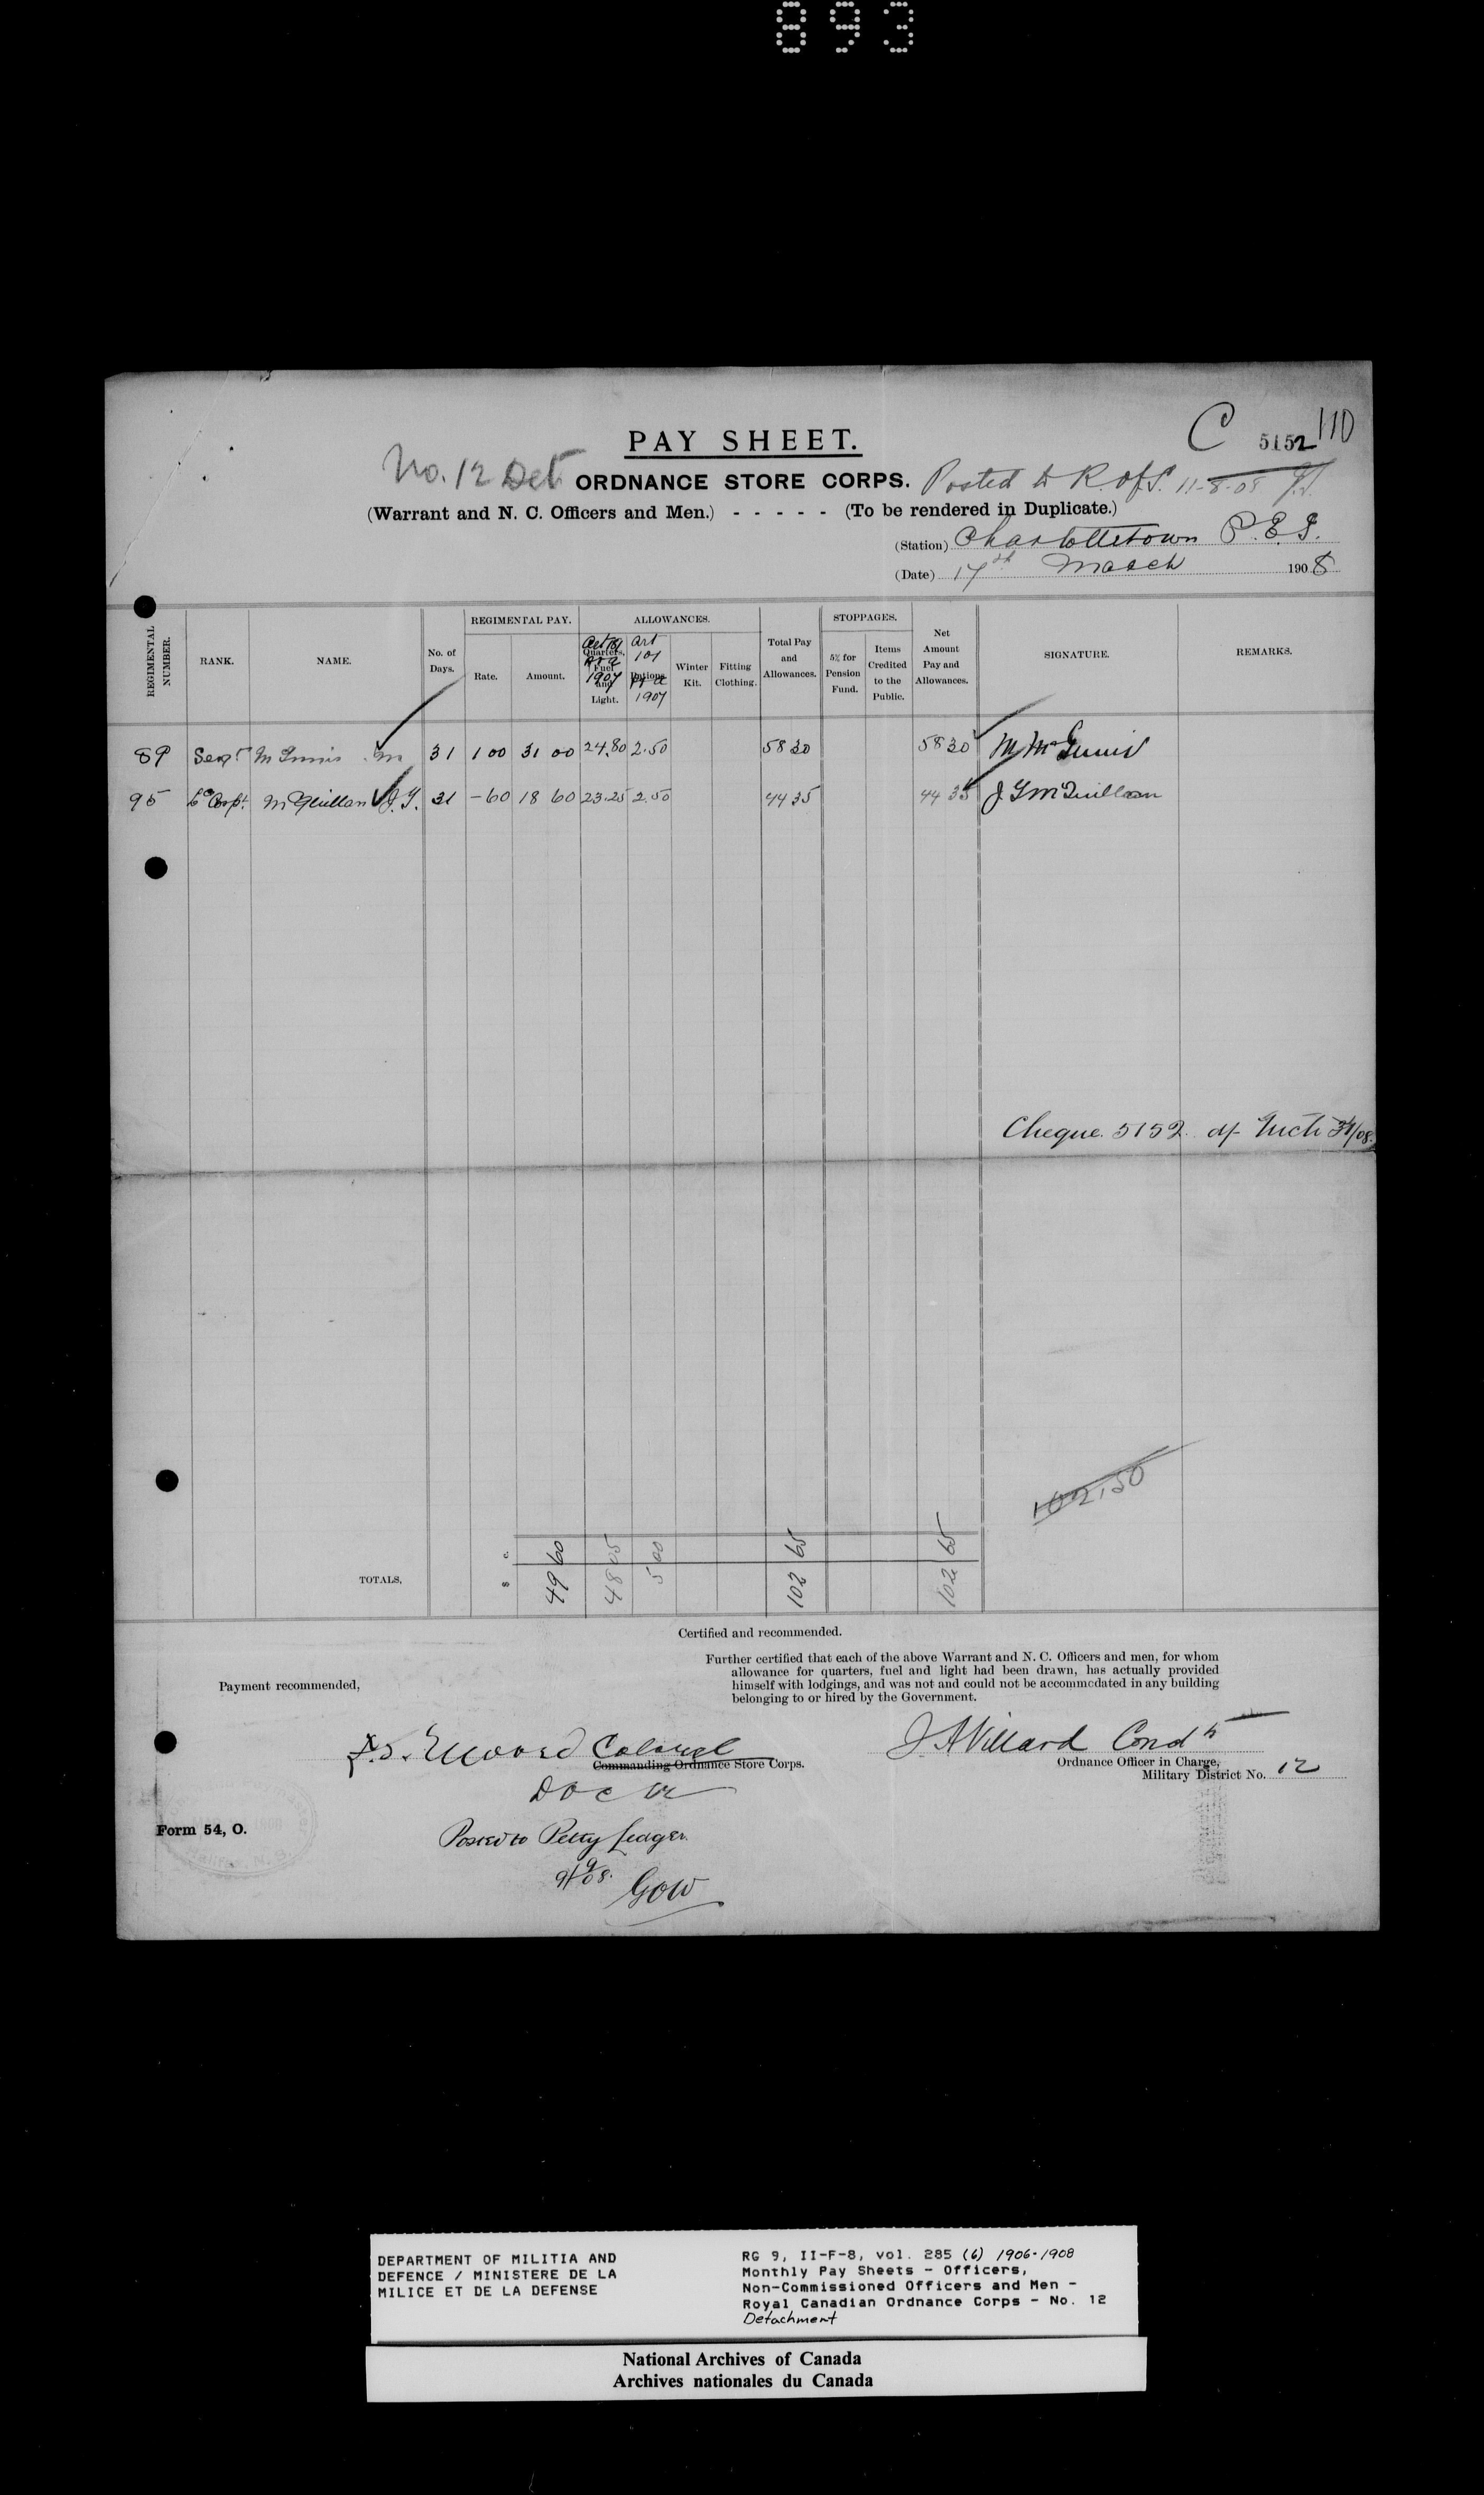 893
C 5152 110
PAY SHEET.
No. 12 Det ORDNANCE STORE CORPS. Posted to R. of S. 11-8-08
(Warrant and N. C. Officers and Men.) - - - - - (To be rendered in Duplicate.)
(Station) Charlottetown P.E.I.
(Date) 17th March 1908
REGIMENTAL NUMBER. RANK. NAME. No. of Days. REGIMENTAL PAY. Rate. Amount. ALLOWANCES. Quarters, Fuel and Light. Rations Winter Kit. Fitting Clothing. Total Pay and Allowances. STOPPAGES. 5% for Pension Fund. Items Credited to the Public. Net Amount Pay and Allowances. SIGNATURE. REMARKS.
Art 1907
Art 101 1907
89 Sergt McInnis M 31 1 00 31 00 24.80 2.50 58 30 58 30 M McInnis
95 Corpt. McQuillan J.J. 31 -60 18 60 23.25 2.50 44 35 44 35 J J McQuillan
Cheque 5152 of
102.50
TOTALS, $ c. 49 60 48 05 5 00 102 65 102 65
Certified and recommended.
Further certified that each of the above Warrant and N. C. Officers and men, for whom
allowance for quarters, fuel and light had been drawn, has actually provided
himself with lodgings, and was not and could not be accommodated in any building
belonging to or hired by the Government.
Payment recommended,
Moore Colonel
Commanding Ordnance Store Corps.
DOC 12
J A Villard Condr
Ordnance Officer in Charge,
Military District No. 12
Form 54, O.
Posted to Petty Ledger
9/9/08. GOW
DEPARTMENT OF MILITIA AND
DEFENCE / MINISTERE DE LA
MILICE ET DE LA DEFENSE
RG 9, II-F-8, vol. 285 (6) 1906-1908
Monthly Pay Sheets - Officers,
Non-Commissioned Officers and Men -
Royal Canadian Ordnance Corps - No. 12
Detachment
National Archives of Canada
Archives nationales du Canada